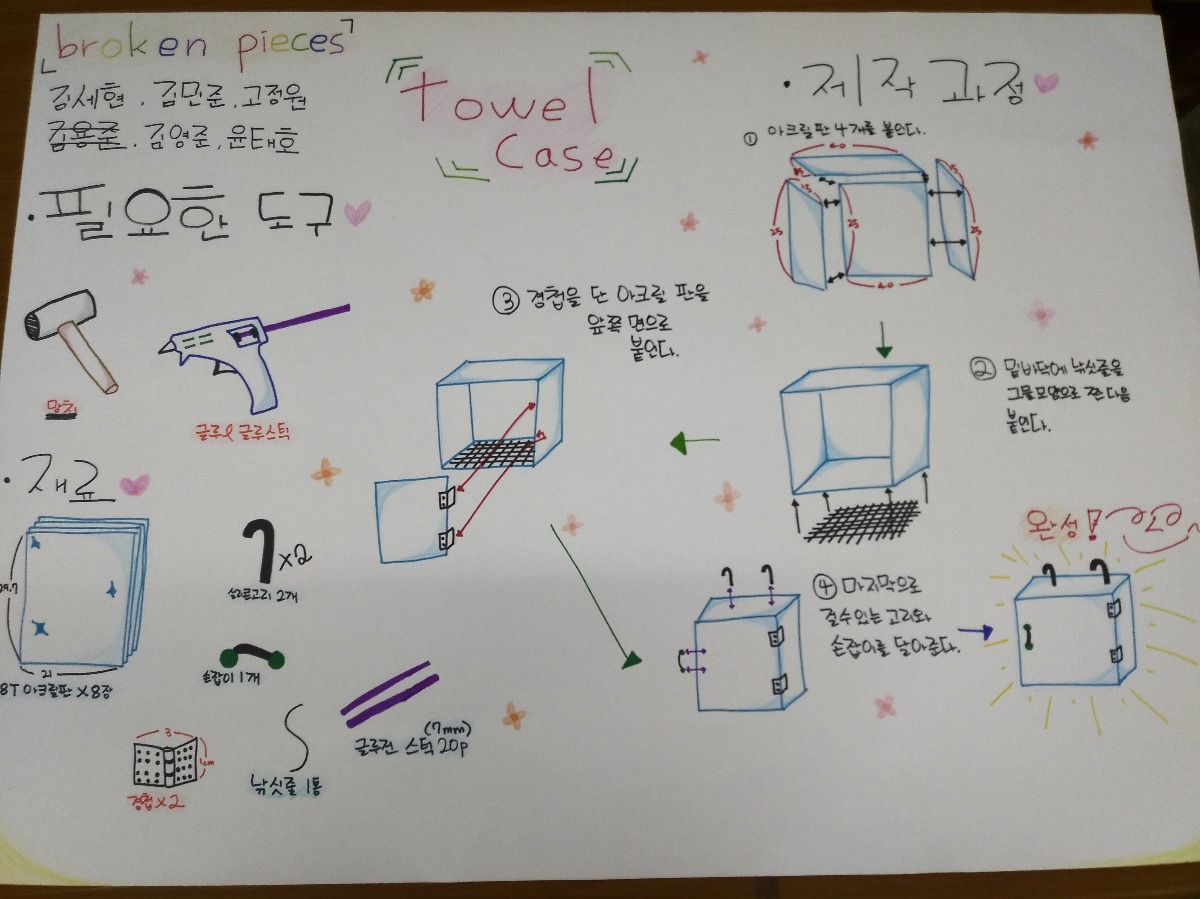 「broken pieces」
김세현, 김민준, 고정원
김용준, 김영준, 윤태호
『Towel
Case』
· 필요한 도구
망치
글루 & 글루스틱
· 재료
29.7
21
8T 아크릴판 X 8장
X2
2개
손잡이 1개
3
1cm
경첩 X 2
낚싯줄 1통
(7mm)
글루건 스틱 20p
· 제작 과정
① 아크릴판 4개를 붙인다.
40
15
25
25
25
40
② 밑바닥에 낚싯줄을
그물모양으로 짠 다음
붙인다.
③ 경첩을 단 아크릴 판을
앞쪽 면으로
붙인다.
④ 마지막으로
걸수있는 고리와
손잡이를 달아준다.
완성!